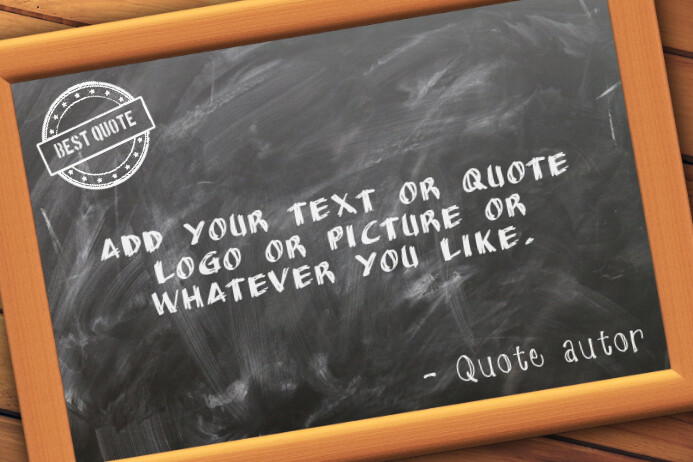 BEST QUOTE
ADD YOUR TEXT OR QUOTE
LOGO OR PICTURE OR
WHATEVER YOU LIKE.
- Quote autor